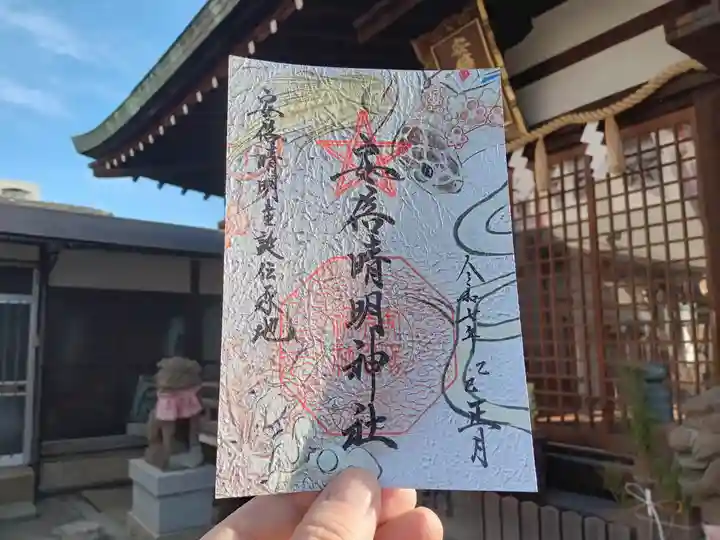 安倍晴明神社
安倍晴明生誕伝承地
令和七年
乙巳
正月